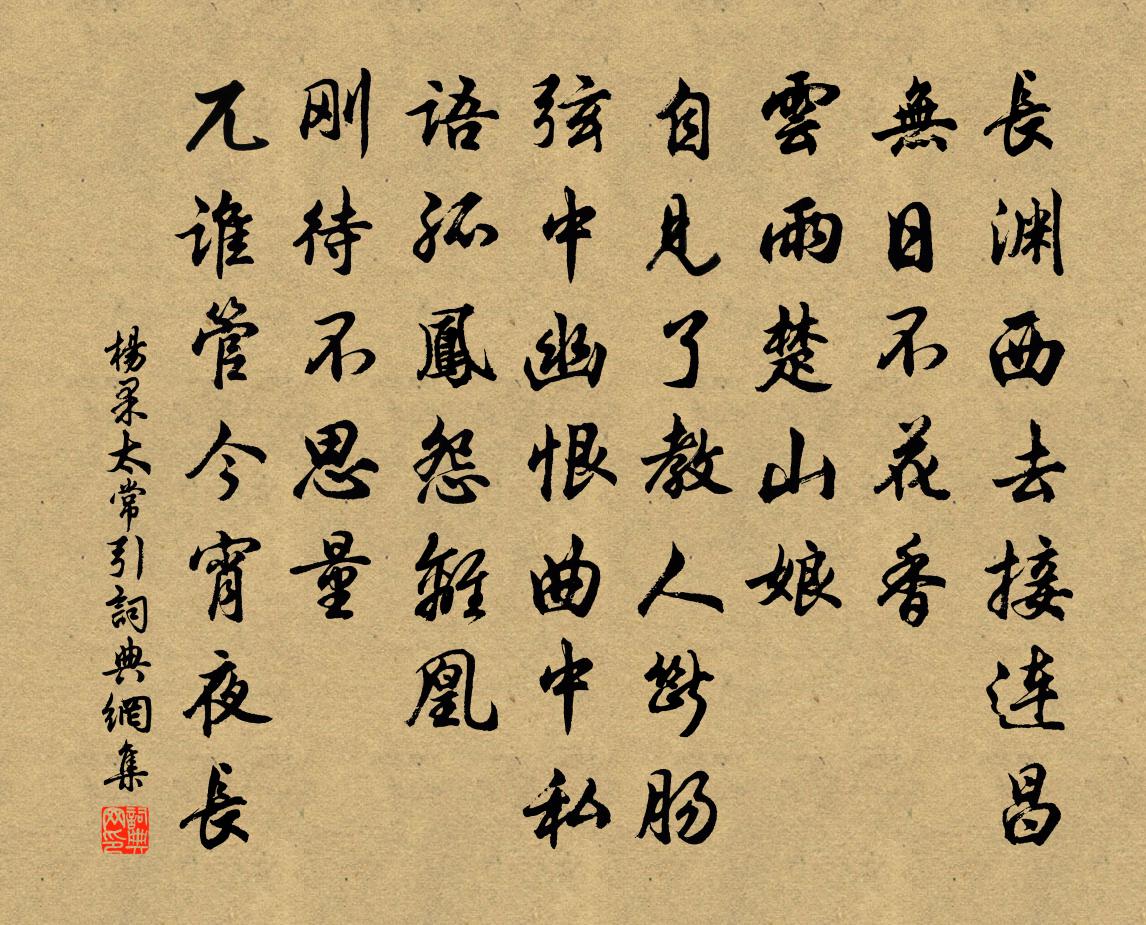 長渊西去接連昌
無日不花香
雲雨楚山娘
自見了教人斷腸
弦中幽恨曲中私
語孤鳳怨離凰
刚待不思量
兀谁管今宵夜長
楊果太常引詞典網集
詞典网印